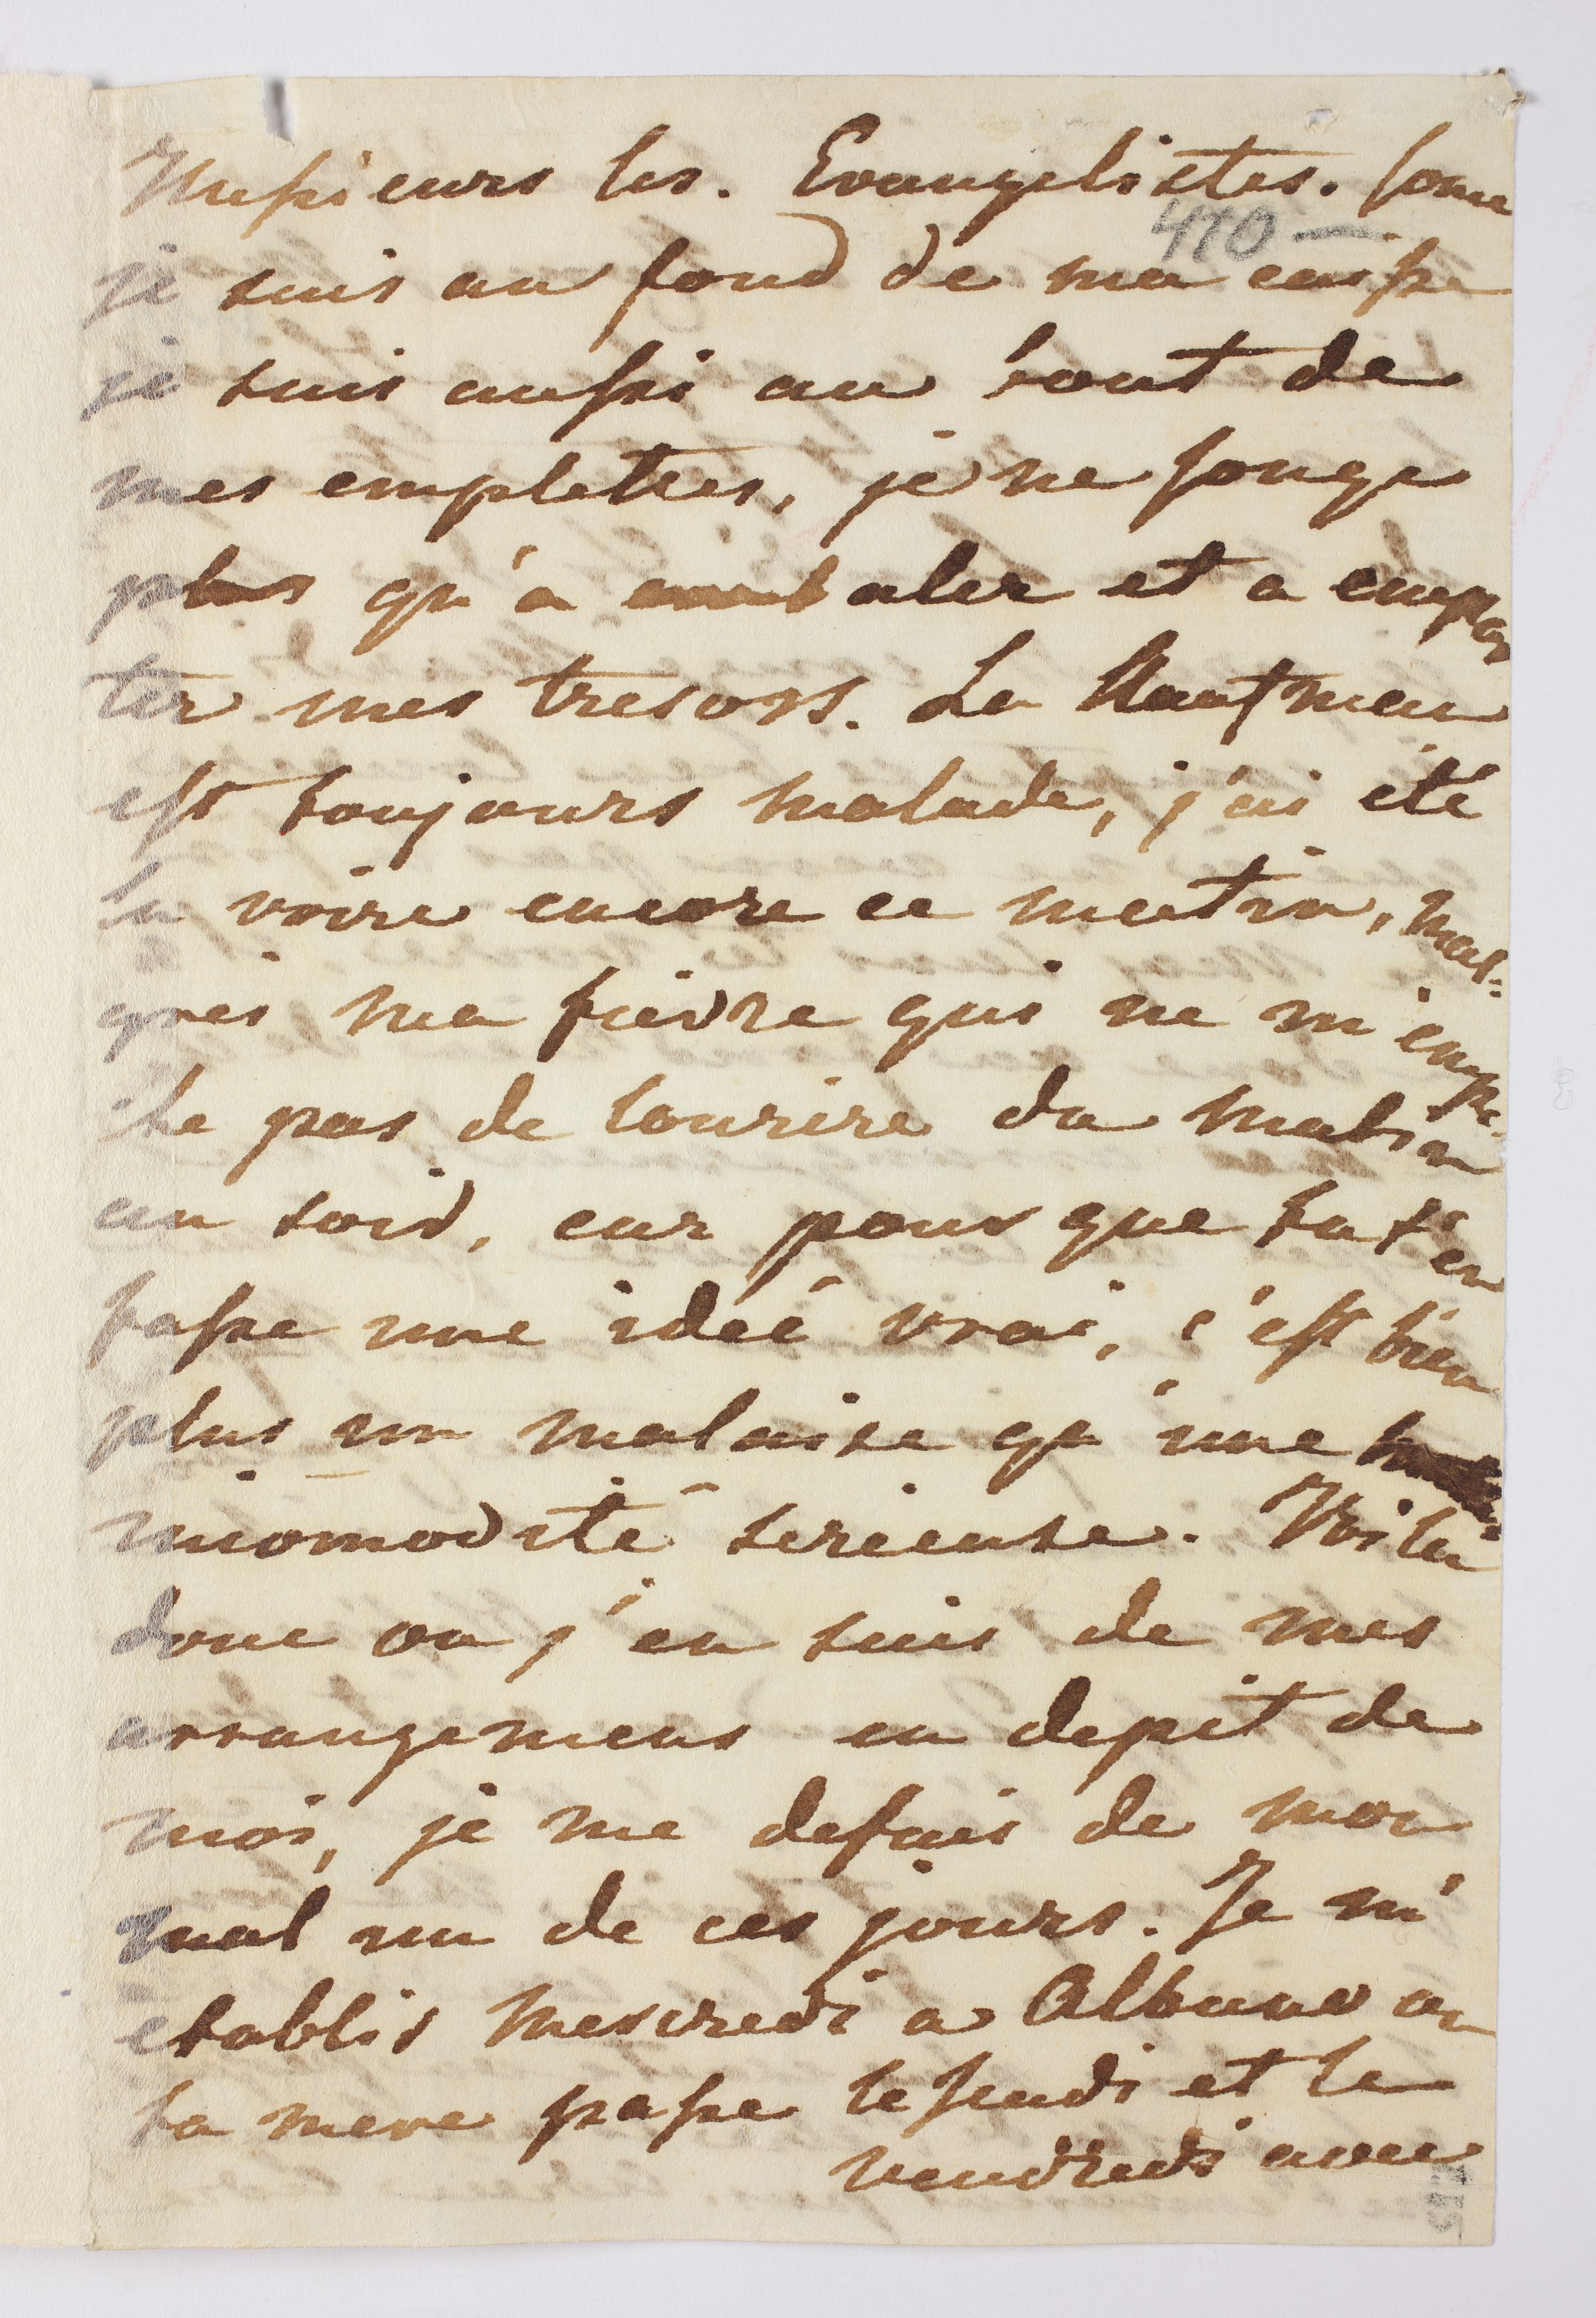 Messieurs les. Evangelistes. Come
410 —
je suis au fond de ma caisse
je suis aussi au bout de
mes emplettes, je ne songe
plus qu'a embaler et a empor
ter mes tresors. La Kaufman
est toujours malade, j'ai été
la voire encore ce matin, mal=
gres ma fievre qui ne m'empe-
che pas de courire du matin
au soir, car pour que tu t'en
fasse une idée vrai, c'est bien
plus un malaise qu'une
incomodité serieuse. Voila
donc ou j'en suis de mes
arrangemens en depit de
moi, je me defais de mon
mal un de ces jours. Je m'
etablis mercredi a Albano ou
ta mere passe le jeudi et le
vendredi avec